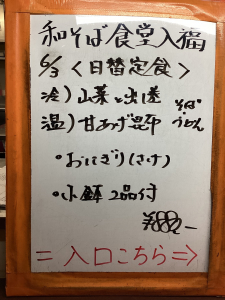 和そば食堂入福
6/3 <日替定食>
冷) 山菜と出汁 そば・
温) 甘あげ昆布 うどん
・おにぎり(さけ)
・小鉢 2品付
¥880-
=入口こちら⇒